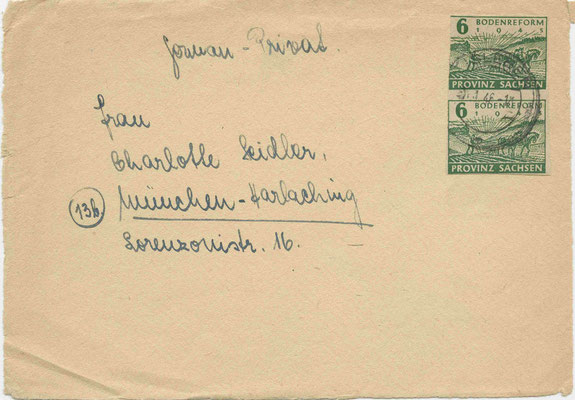 German - Privat.
6 BODENREFORM
1945
PROVINZ SACHSEN
6 BODENREFORM
PROVINZ SACHSEN
Frau
Charlotte Seidler,
(13b) München-Harlaching
Lorenzonistr. 16.